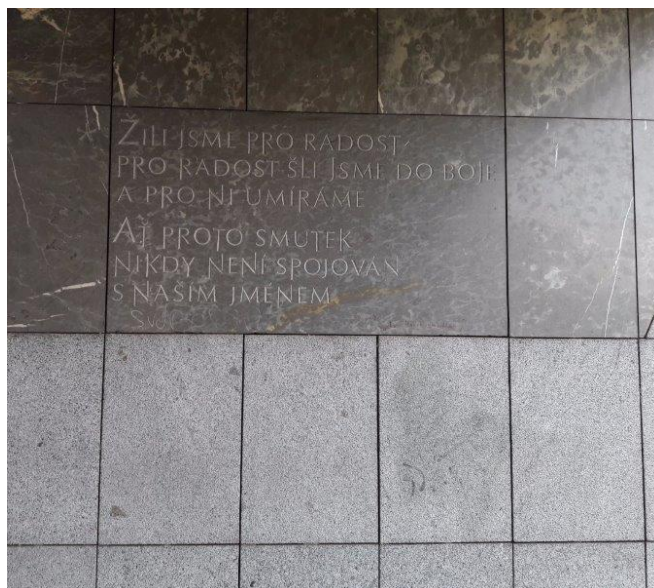 ŽILI JSME PRO RADOST,
PRO RADOST ŠLI JSME DO BOJE
A PRO NI UMÍRÁME
AŤ PROTO SMUTEK
NIKDY NENÍ SPOJOVÁN
S NAŠÍM JMÉNEM